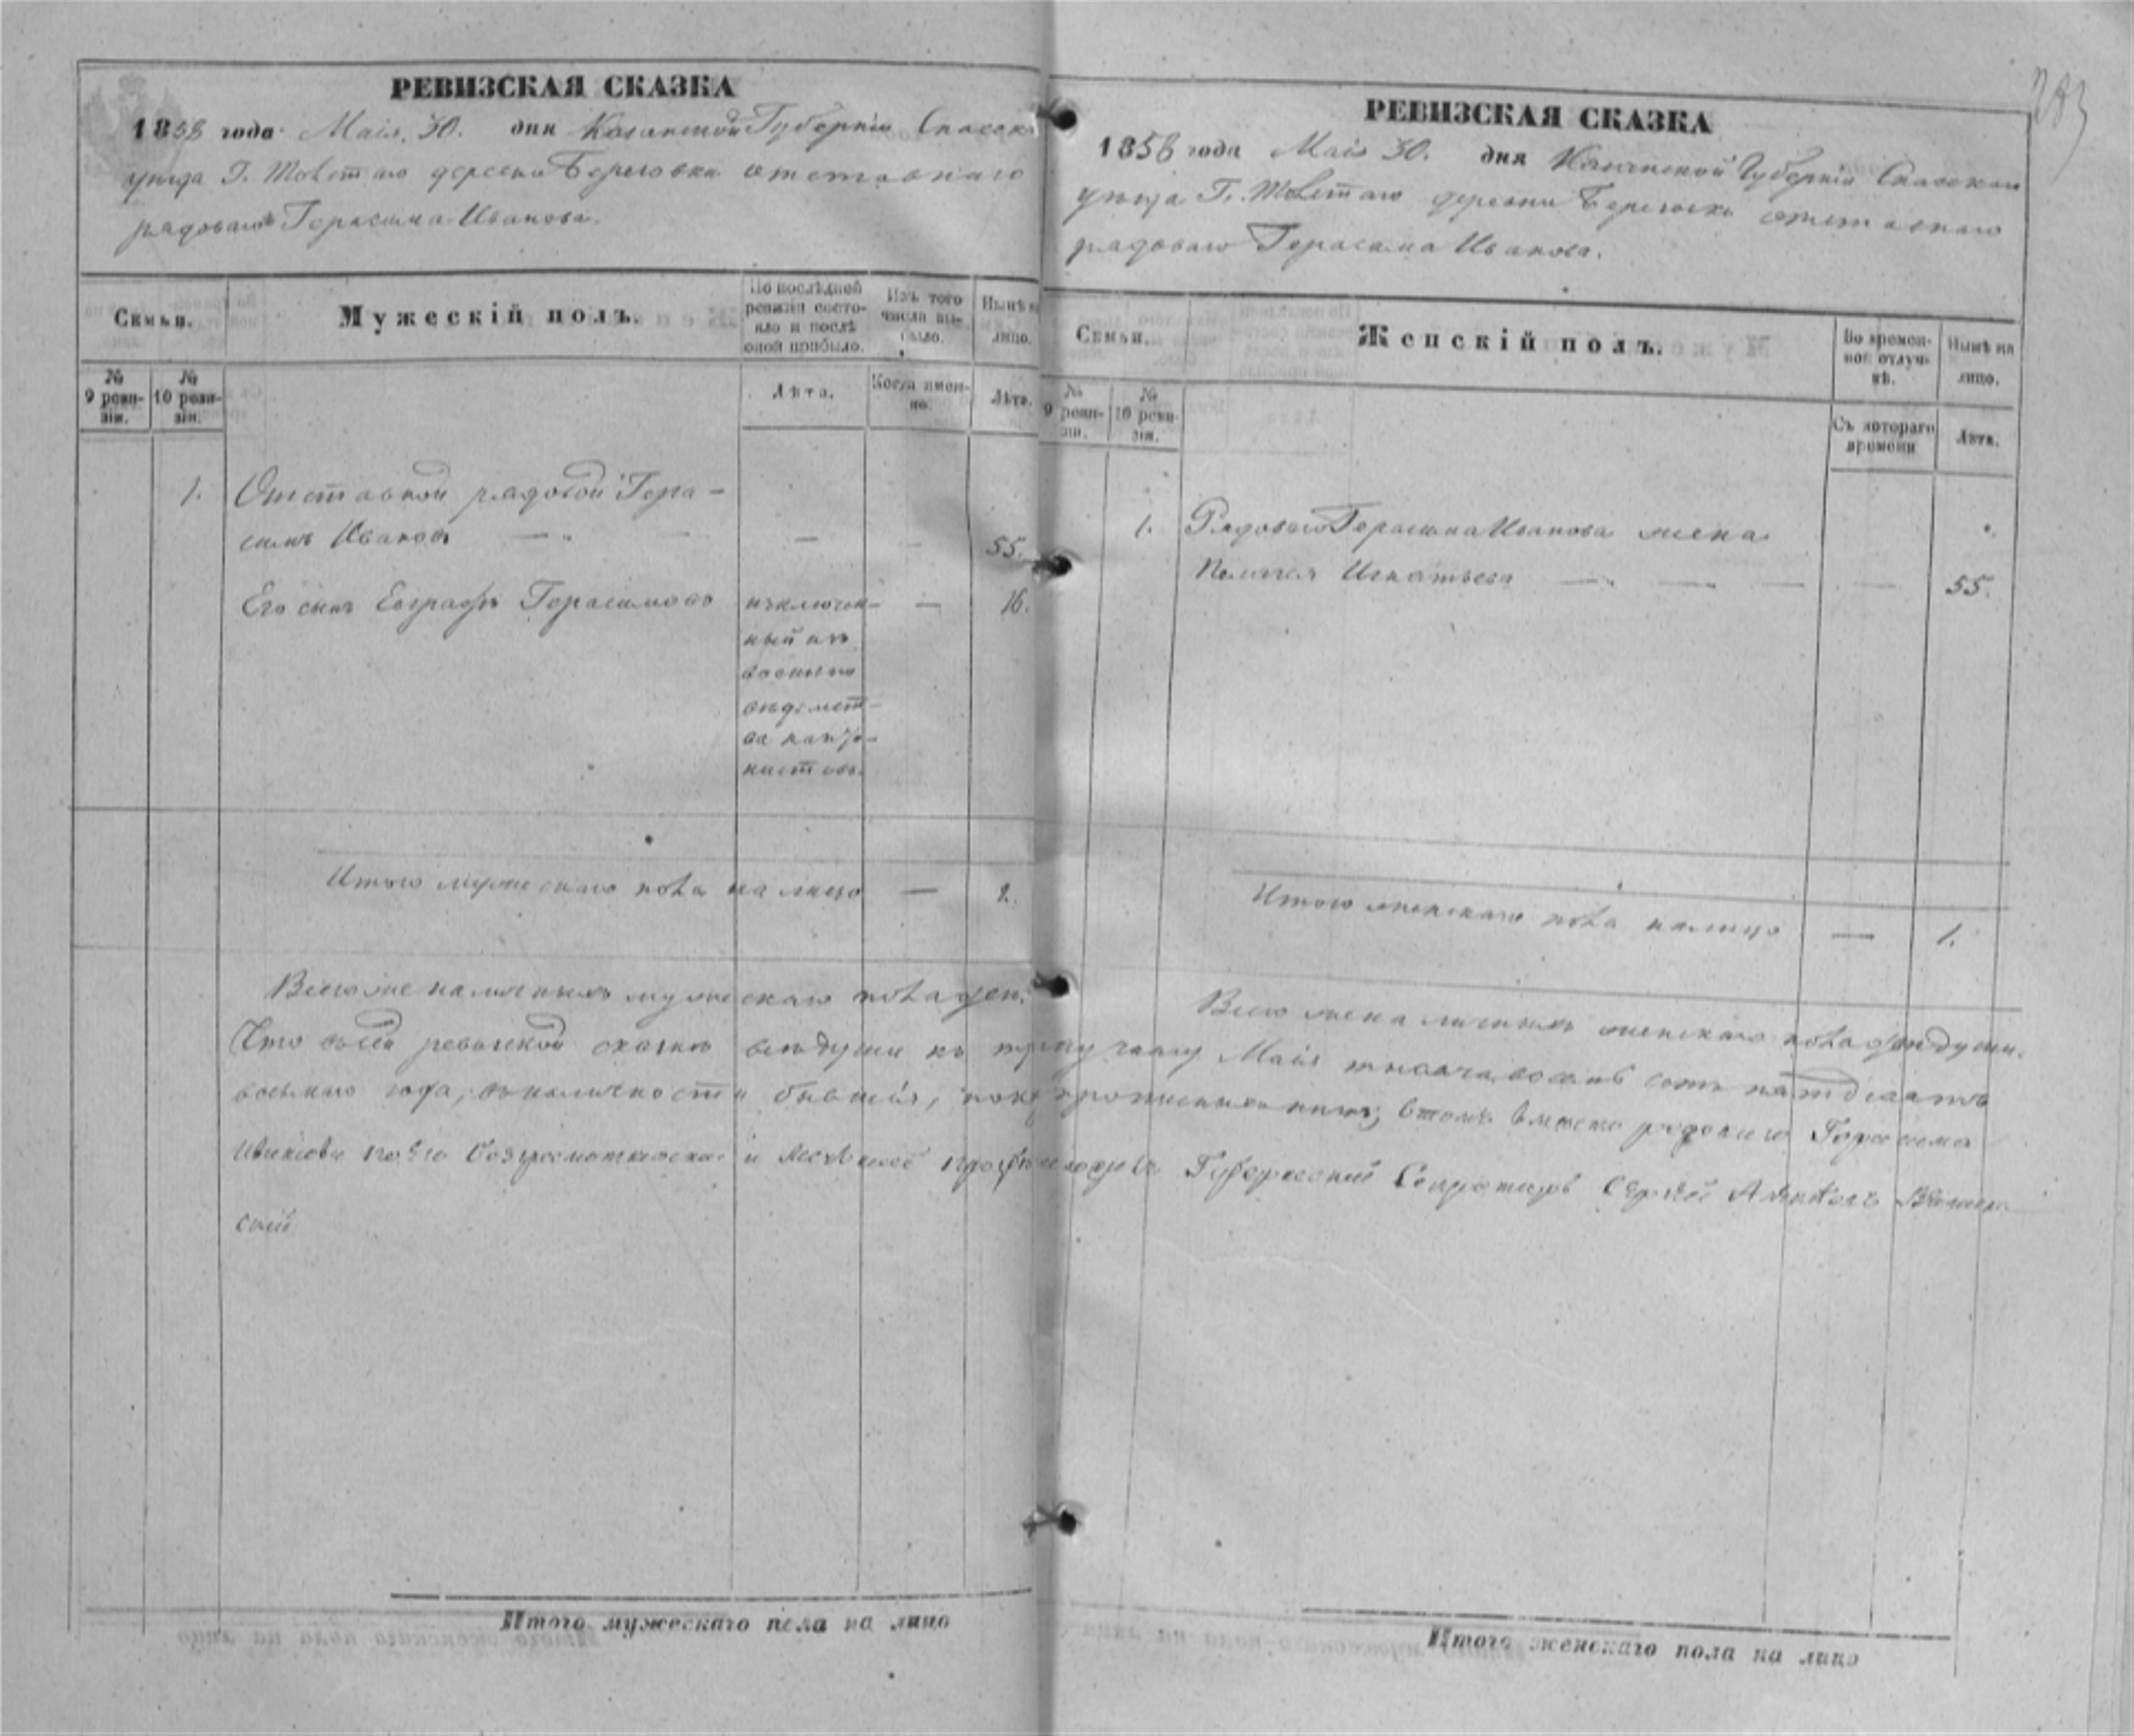 283
РЕВИЗСКАЯ СКАЗКА
1858 года Маія 30. дня Казанской Губерніи Спасск
уезда Г. Толстаго деревни Береговки отставнаго
рядоваго Герасима Иванова.
Семьи.
Мужескій полъ.
По послѣдней ревизіи состояло и послѣ оной прибыло.
Изъ того числа выбыло.
Нынѣ на лицо.
№ 9 ревизіи.
№ 10 ревизіи.
Лѣта.
Когда именно.
Лѣта.
1. Отставной рядовой Гера-
симъ Ивановъ — — — 55.
Его сынъ Евграфъ Герасимовъ изключен- — 16.
ный изъ
военнаго
вѣдомст-
ва канто-
нистовъ.
Итого мужескаго пола на лицо — 2.
РЕВИЗСКАЯ СКАЗКА
1858 года Маія 30. дня Казанской Губерніи Спасскаго
уезда Г. Толстаго деревни Береговки отставнаго
рядоваго Герасима Иванова.
Семьи.
Женскій полъ.
Во временной отлучкѣ.
Нынѣ на лицо.
№ 9 ревизіи.
№ 10 ревизіи.
Съ котораго времени
Лѣта.
1. Рядоваго Герасима Иванова жена
Пелагея Игнатьева — — — — 55.
Итого женскаго пола налицо — 1.
Всего же наличныхъ мужескаго пола Всего же наличныхъ женскаго пола души.
Что въ сей ревизской сказке все души къ Маія тысяча восемь сотъ пятдесятъ
восьмаго года, въ наличности бывшія, въ томъ вместо рядоваго Герасима
Иванова по его и Губернскій Секретарь Сергей
ской
Итого мужескаго пола на лицо
Итого женскаго пола на лицо